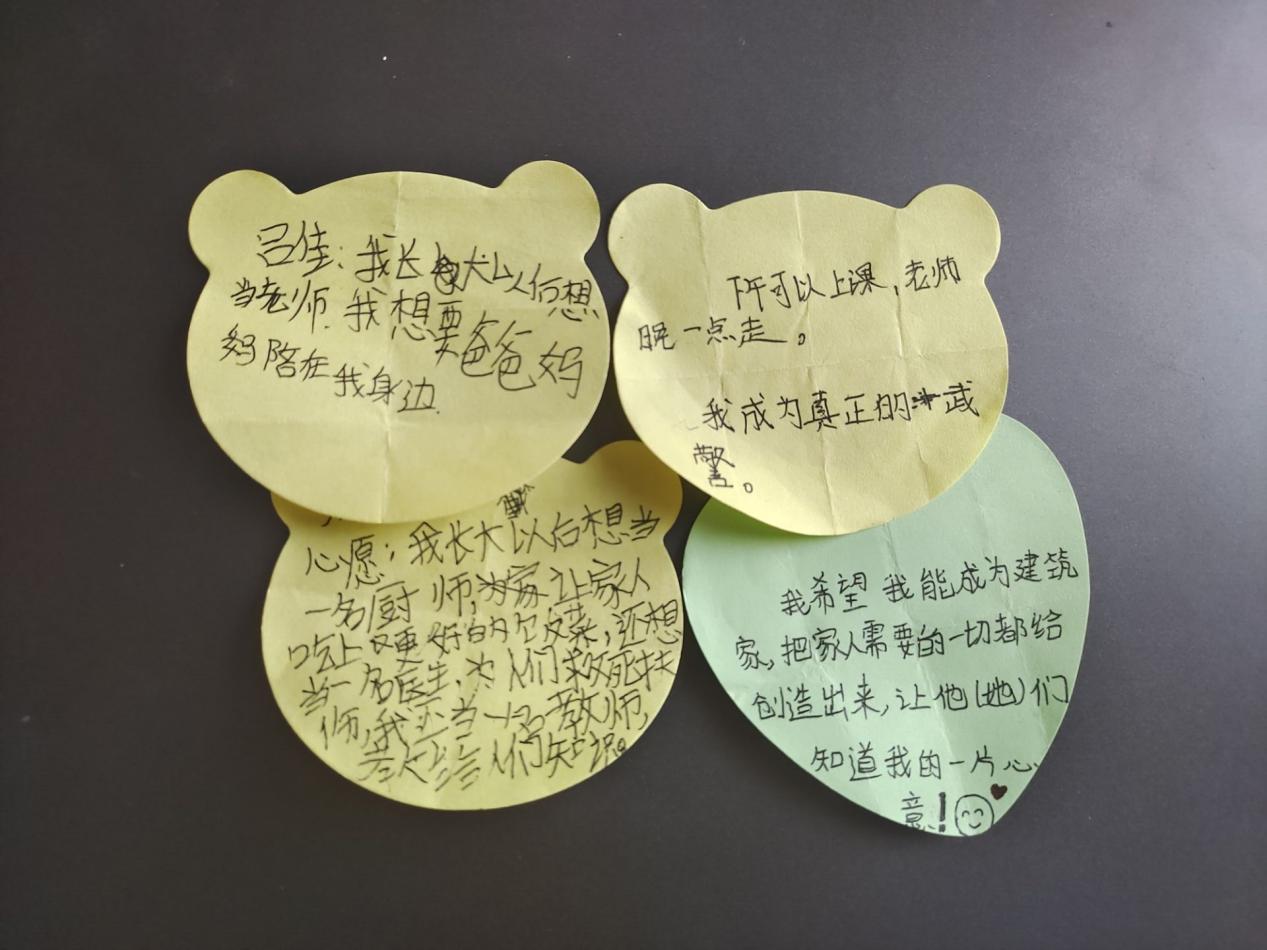 吕佳：我长大以后想
当老师.我想要爸爸妈
妈陪在我身边.
下午可以上课,老师
晚一点走。
我成为真正的武
警。
心愿：我长大以后想当
一名厨师,为家让家人
吃上更好的饭菜,还想
当一名医生,为人们救死扶
师,我还当一名教师,
教给人们知识。
我希望我能成为建筑
家,把家人需要的一切都给
创造出来,让他(她)们
知道我的一片心
意!